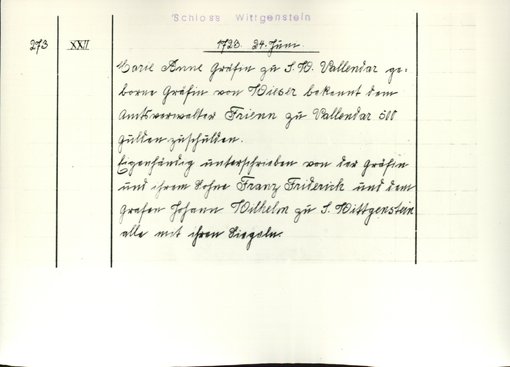 Schloss Wittgenstein
273 XXII 1723. 24. Juni
Marie Anne Gräfin zu S. W. Vallendar ge-
borne Gräfin von Wieser bekennt dem
Amtsverwalter Frienn zu Vallendar 500
Gulden zuschulden.
Eigenhändig unterschrieben von der Gräfin
und ihrem Sohne Franz Friderick und dem
Grafen Johann Wilhelm zu S. Wittgenstein
alle mit ihren Siegeln.